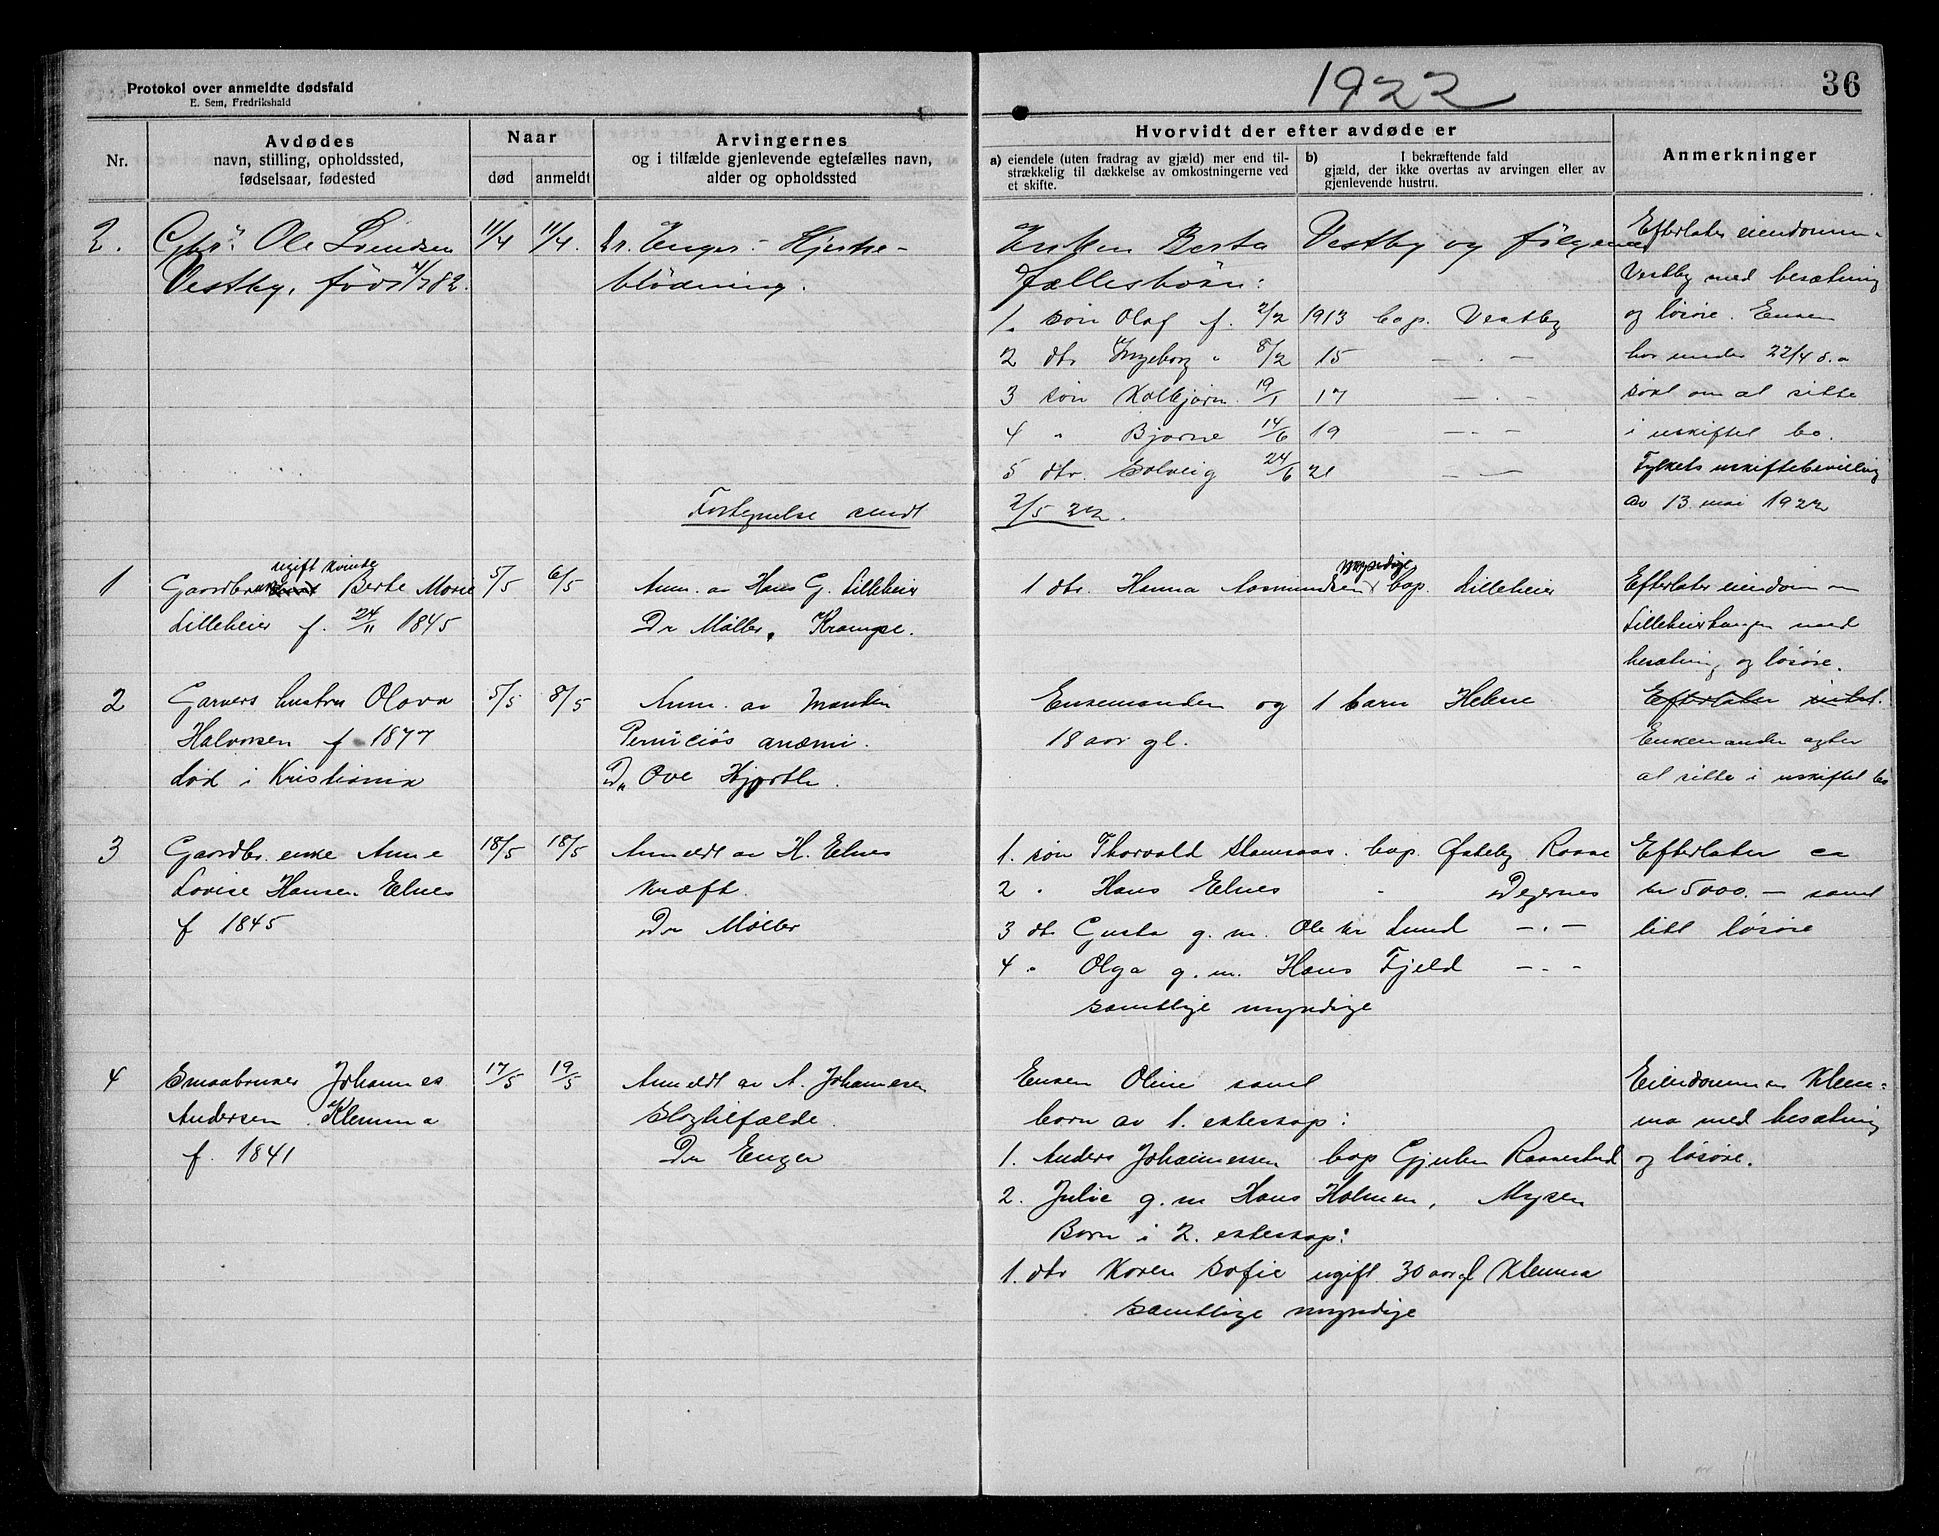 Protokol over anmeldte dødsfald
E. Sem, Fredrikshald
1922
36
Nr.
Avdødes
navn, stilling, opholdssted,
fødselsaar, fødested
Naar
død
anmeldt
Arvingernes
og i tilfælde gjenlevende egtefælles navn,
alder og opholdssted
Hvorvidt der efter avdøde er
a) eiendele (uten fradrag av gjæld) mer end til-
strækkelig til dækkelse av omkostningerne ved
et skifte.
b) I bekræftende fald
gjæld, der ikke overtas av arvingen eller av
gjenlevende hustru.
Anmerkninger
2. Gbr. Ole Svendsen 11/4 11/4. Dr. Enger - Hjerte-
Vestby, født 4/7 82. blödning.
Enken Berta Vestby og følgende
fællesbörn:
1. søn Olaf f. 2/2 1913 bop. Vestby
2 dtr Ingeborg " 8/2 15 — . —
3 søn Kolbjørn 19/1 17 — . —
4 " Bjarne 14/6 19 — . —
5 dtr. Solveig 24/6 21 — —
Fortegnelse sendt 2/5 22.
Efterlater eiendommen
Vestby med besætning
og løsøre. Enken
har under 22/4 d.a
søkt om at sitte
i uskiftet bo.
Fylkets uskiftebevilling
av 13 mai 1922
ugift kvinde
1 Gaardbr. Berte Marie 5/5 6/5
Lilleheier f. 24/11 1845
Anm. av Hans G. Lilleheier
Dr Møller. Krampe.
myndige
1 dtr. Hanna Aamundsen bop. Lilleheier
Efterlater eiendommen
Lilleheierhaugen med
besætning og løsøre.
2 Garvers hustru Olava 5/5 8/5
Halvorsen f 1877
død i Kristiania
Anm. av manden
Perniciøs anæmi.
Dr Ove Hjorth.
Enkemanden og 1 barn Helene
18 aar gl.
Efterlater intet.
Enkemanden agter
at sitte i uskiftet bo
3 Gaardbr. enke Anne 18/5 18/5
Lovise Hansen Elnes
f 1845
Anmeldt av H. Elnes
Kræft.
Dr Møller
1. søn Thorvald Hansen bop. Østeby Raade
2 " Hans Elnes " Degernes
3 dtr Gusta g. m. Ole Kr Lund — . —
4 " Olga g. m. Hans Fjeld — . —
samtlige myndige
Efterlater ca
kr 5000.— samt
litt løsøre
4 Smaabruker Johannes 17/5 19/5
Andersen Klemma
f. 1841
Anmeldt av A. Johannesen
Slagtilfælde.
Dr Enger
Enken Oline samt
børn av 1. ekteskap:
1. Anders Johannessen bop Gjulem Rakkestad
2. Julie g. m Hans Holmen, Mysen
Børn i 2. ekteskap:
1. dtr Karen Sofie ugift 30 aar gl Klemma
samtlige myndige
Eiendommen Klem-
ma med besætning
og løsøre.